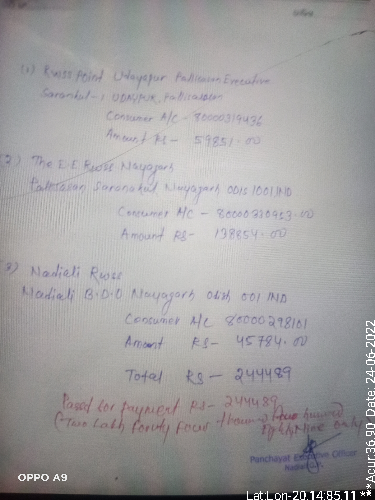 (1) RWSS Point Udayapur Pallisasan Executive
Sarankul-1 UDAYPUR, Pallisasan
Consumer A/C - 80000319436
Amount RS- 59851.00
(2) The E.E RWSS Nayagarh
Pallisasan Sarankul Nayagarh ODIS 1001 IND
Consumer A/C - 80000320953.00
Amount RS- 138854.00
3) Nadiali RWSS
Nadiali B.D.O Nayagarh Odish 001 IND
Consumer A/c 80000298101
Amount RS- 45784.00
Total RS- 244489
Passed for payment RS- 244489
(Two Lakh forty four thousand four hundred
Eighty Nine only
Panchayat Executive Officer
OPPO A9
Lat Lon-20.14:85.11 ***
Acur:36.90 Date: 24-06-2022